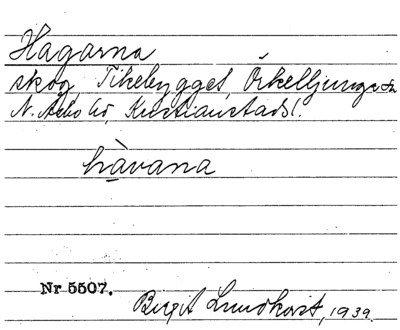 Hagarna
skog Tikebygget, Örkelljunga sn
N. Åsbo hd, Kristianstads l.
hàvana
Nr 5507.
Birgit Lundkvist, 1939.